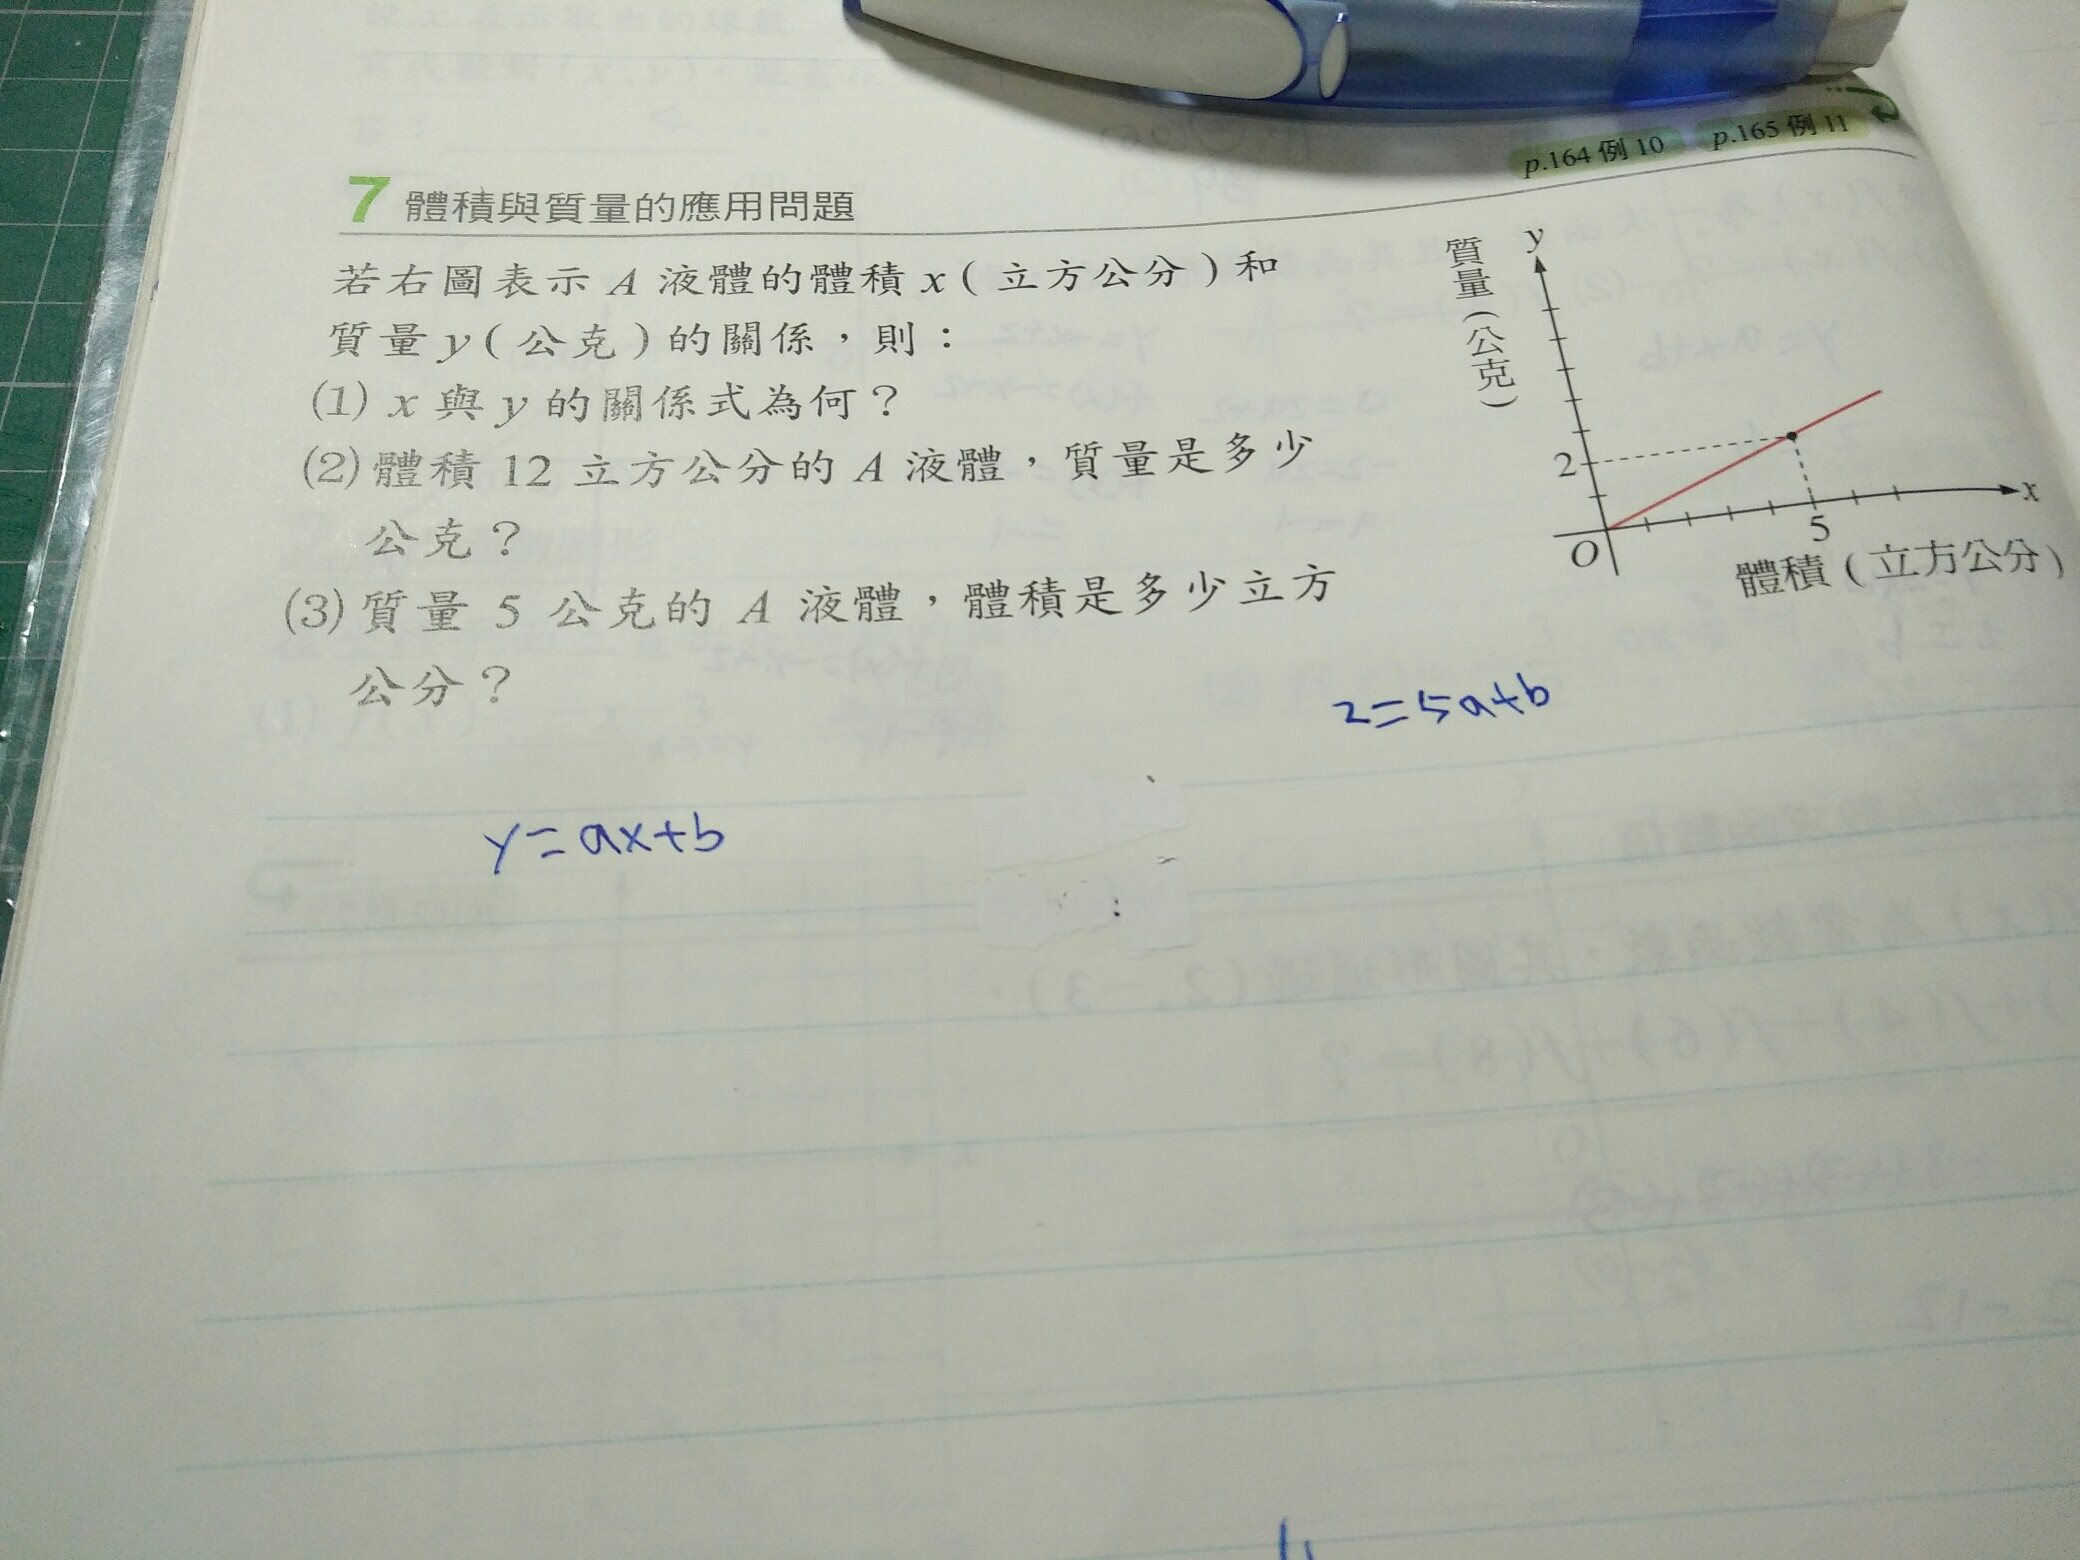 p.164 例 10 p.165 例 11
7 體積與質量的應用問題
若右圖表示 A 液體的體積 x ( 立方公分 ) 和
質量 y ( 公克 ) 的關係，則：
(1) x 與 y 的關係式為何？
(2) 體積 12 立方公分的 A 液體，質量是多少
公克？
(3) 質量 5 公克的 A 液體，體積是多少立方
公分？
質量(公克)
y
2
O
5
x
體積 ( 立方公分 )
2=5a+b
y=ax+b